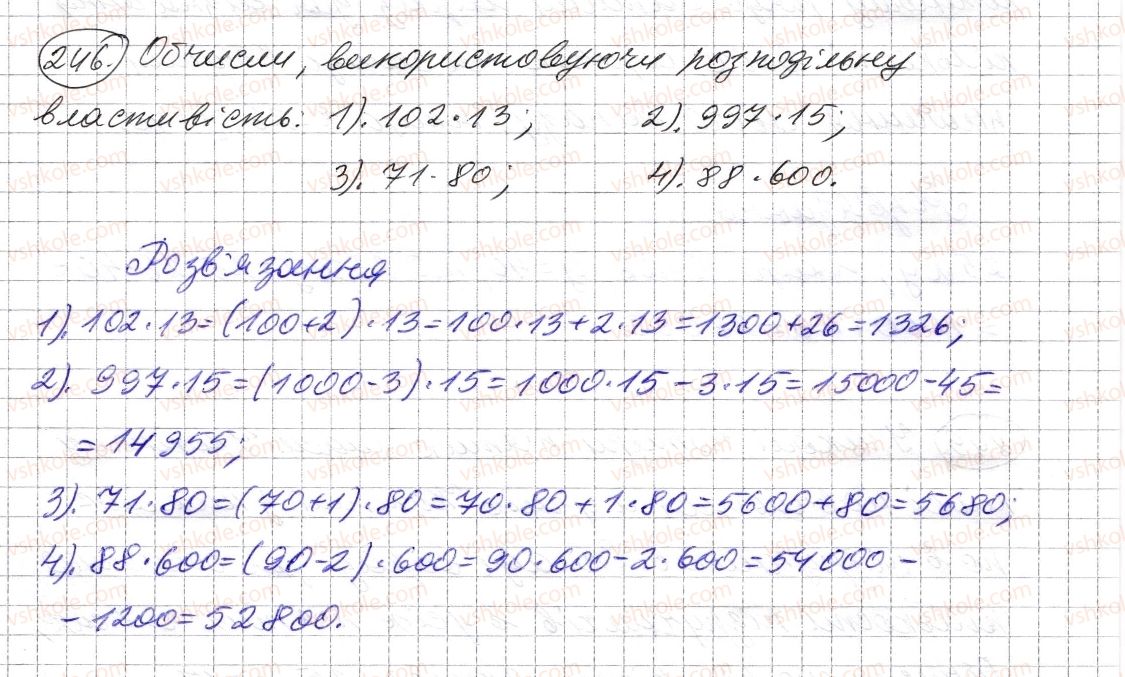 246. Обчисли, використовуючи розподільну
властивість: 1). 102·13; 2). 997·15;
3). 71·80; 4). 88·600.
Розв'язання
1). 102·13=(100+2)·13=100·13+2·13=1300+26=1326;
2). 997·15=(1000-3)·15=1000·15-3·15=15000-45=
=14955;
3). 71·80=(70+1)·80=70·80+1·80=5600+80=5680;
4). 88·600=(90-2)·600=90·600-2·600=54000-
-1200=52800.